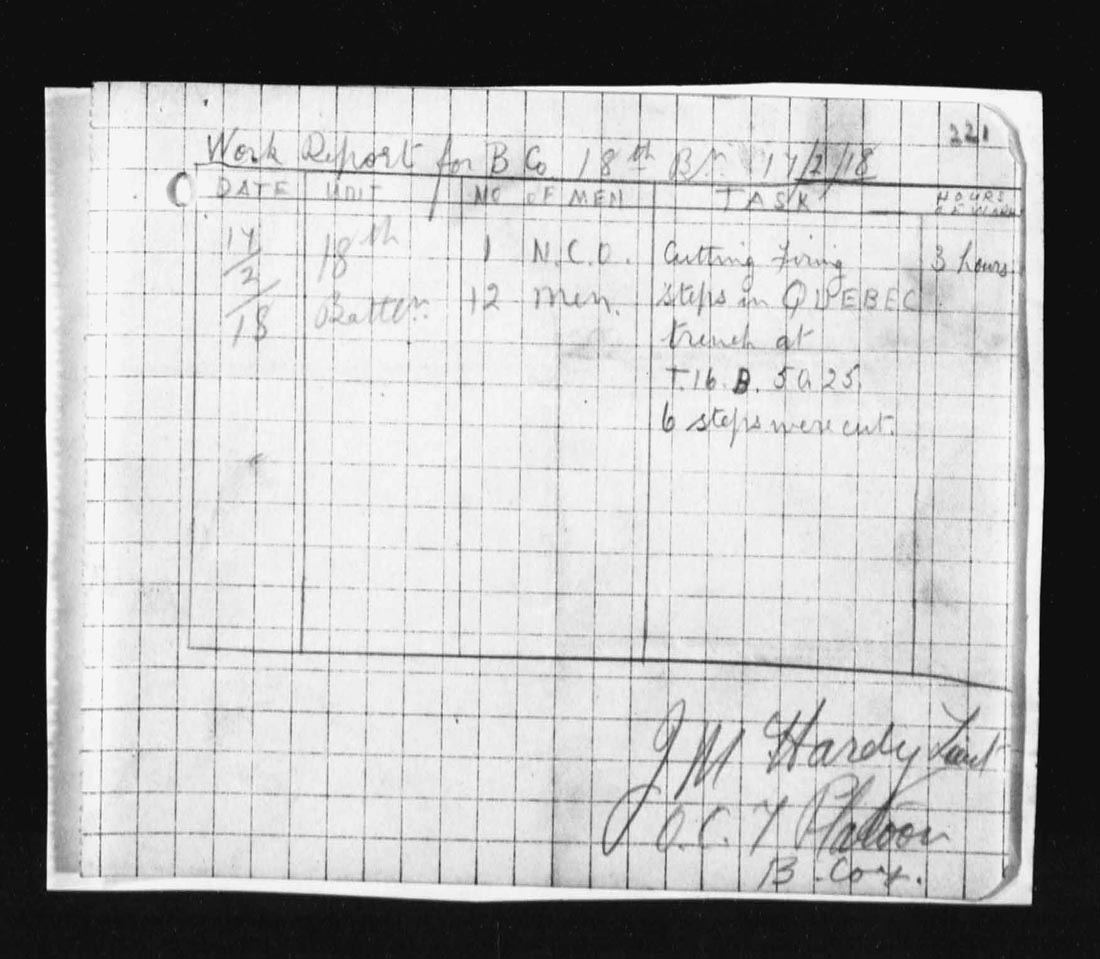 221
Work Report for B Co. 18th Bn. 17/2/18
DATE UNIT NO OF MEN TASK HOURS OF WORK
17/2/18 18th 1 N.C.O. Cutting firing 3 hours.
Battn. 12 men. steps in QUEBEC
trench at
T.16.B. 50.25.
6 steps were cut.
J M Hardy Lieut
O.C. 7 Platoon
B. Coy.